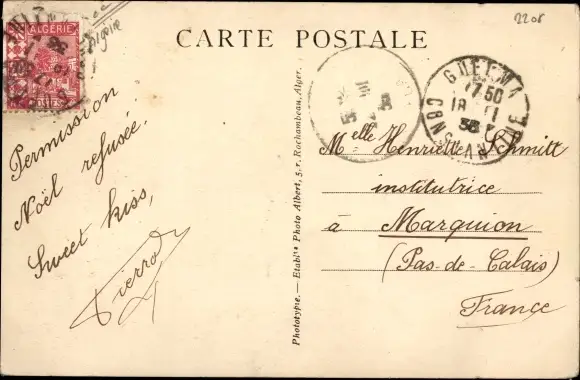 2208
Algérie
CARTE POSTALE
ALGÉRIE
POSTES
GUELMA
17 50
18 11
38
CONSTANTINE
Permission
Noël refusée.
Sweet kiss,
Pierrot
Phototypie. — Etablts Photo Albert, 5, r. Rochambeau, Alger.
Melle Henriette Schmitt
institutrice
à Marquion
(Pas-de-Calais)
France